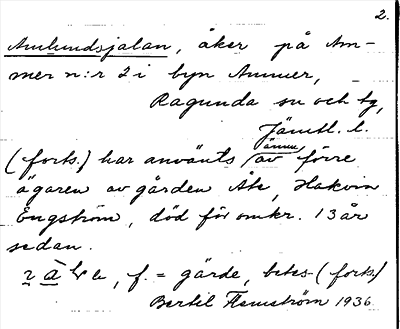 2.
Amlundsjalan, åker på Am-
mer n:r 2 i byn Ammer,
Ragunda sn och tg,
Jämtl. l.
(forts.) har använts även av förre
ägaren av gården Åke, Hakvin
Engström, död för omkr. 13 år
sedan.
f. = gärde, betes- (forts.)
Bertil Flemström 1936.